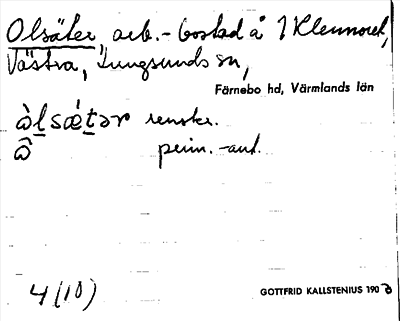 Olsäter arb.-bostad å 1 Klennoret,
Västra, Lungsunds sn,
Färnebo hd, Värmlands län
ὼlsǽtər renskr.
ω̂ prim.-ant.
4 (10)
GOTTFRID KALLSTENIUS 190